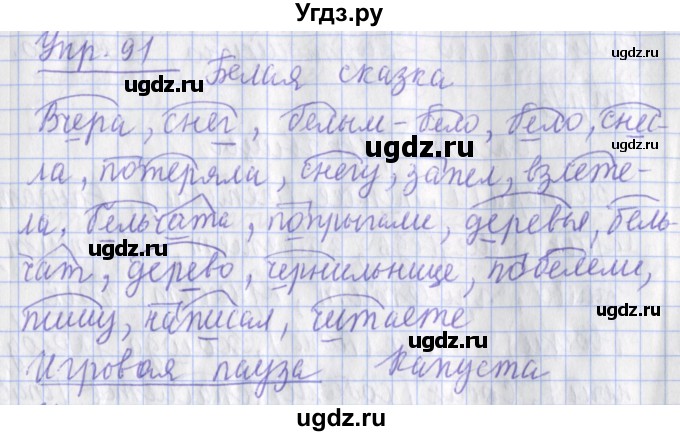 Угдз.ру
Упр. 91
Белая сказка
Вчера, снег, белым-бело, бело, снес-
ла, потеряла, снегу, запел, взлете-
ла, бельчата, попрыгали, деревья, бель-
чат, дерево, чернильнице, побелели,
пишу, написал, читаете
Игровая пауза Капуста
ugdz.ru
ugdz.ru
ugdz.ru
ugdz.ru
ugdz.ru
ugdz.ru
ugdz.ru
ugdz.ru
ugdz.ru
ugdz.ru